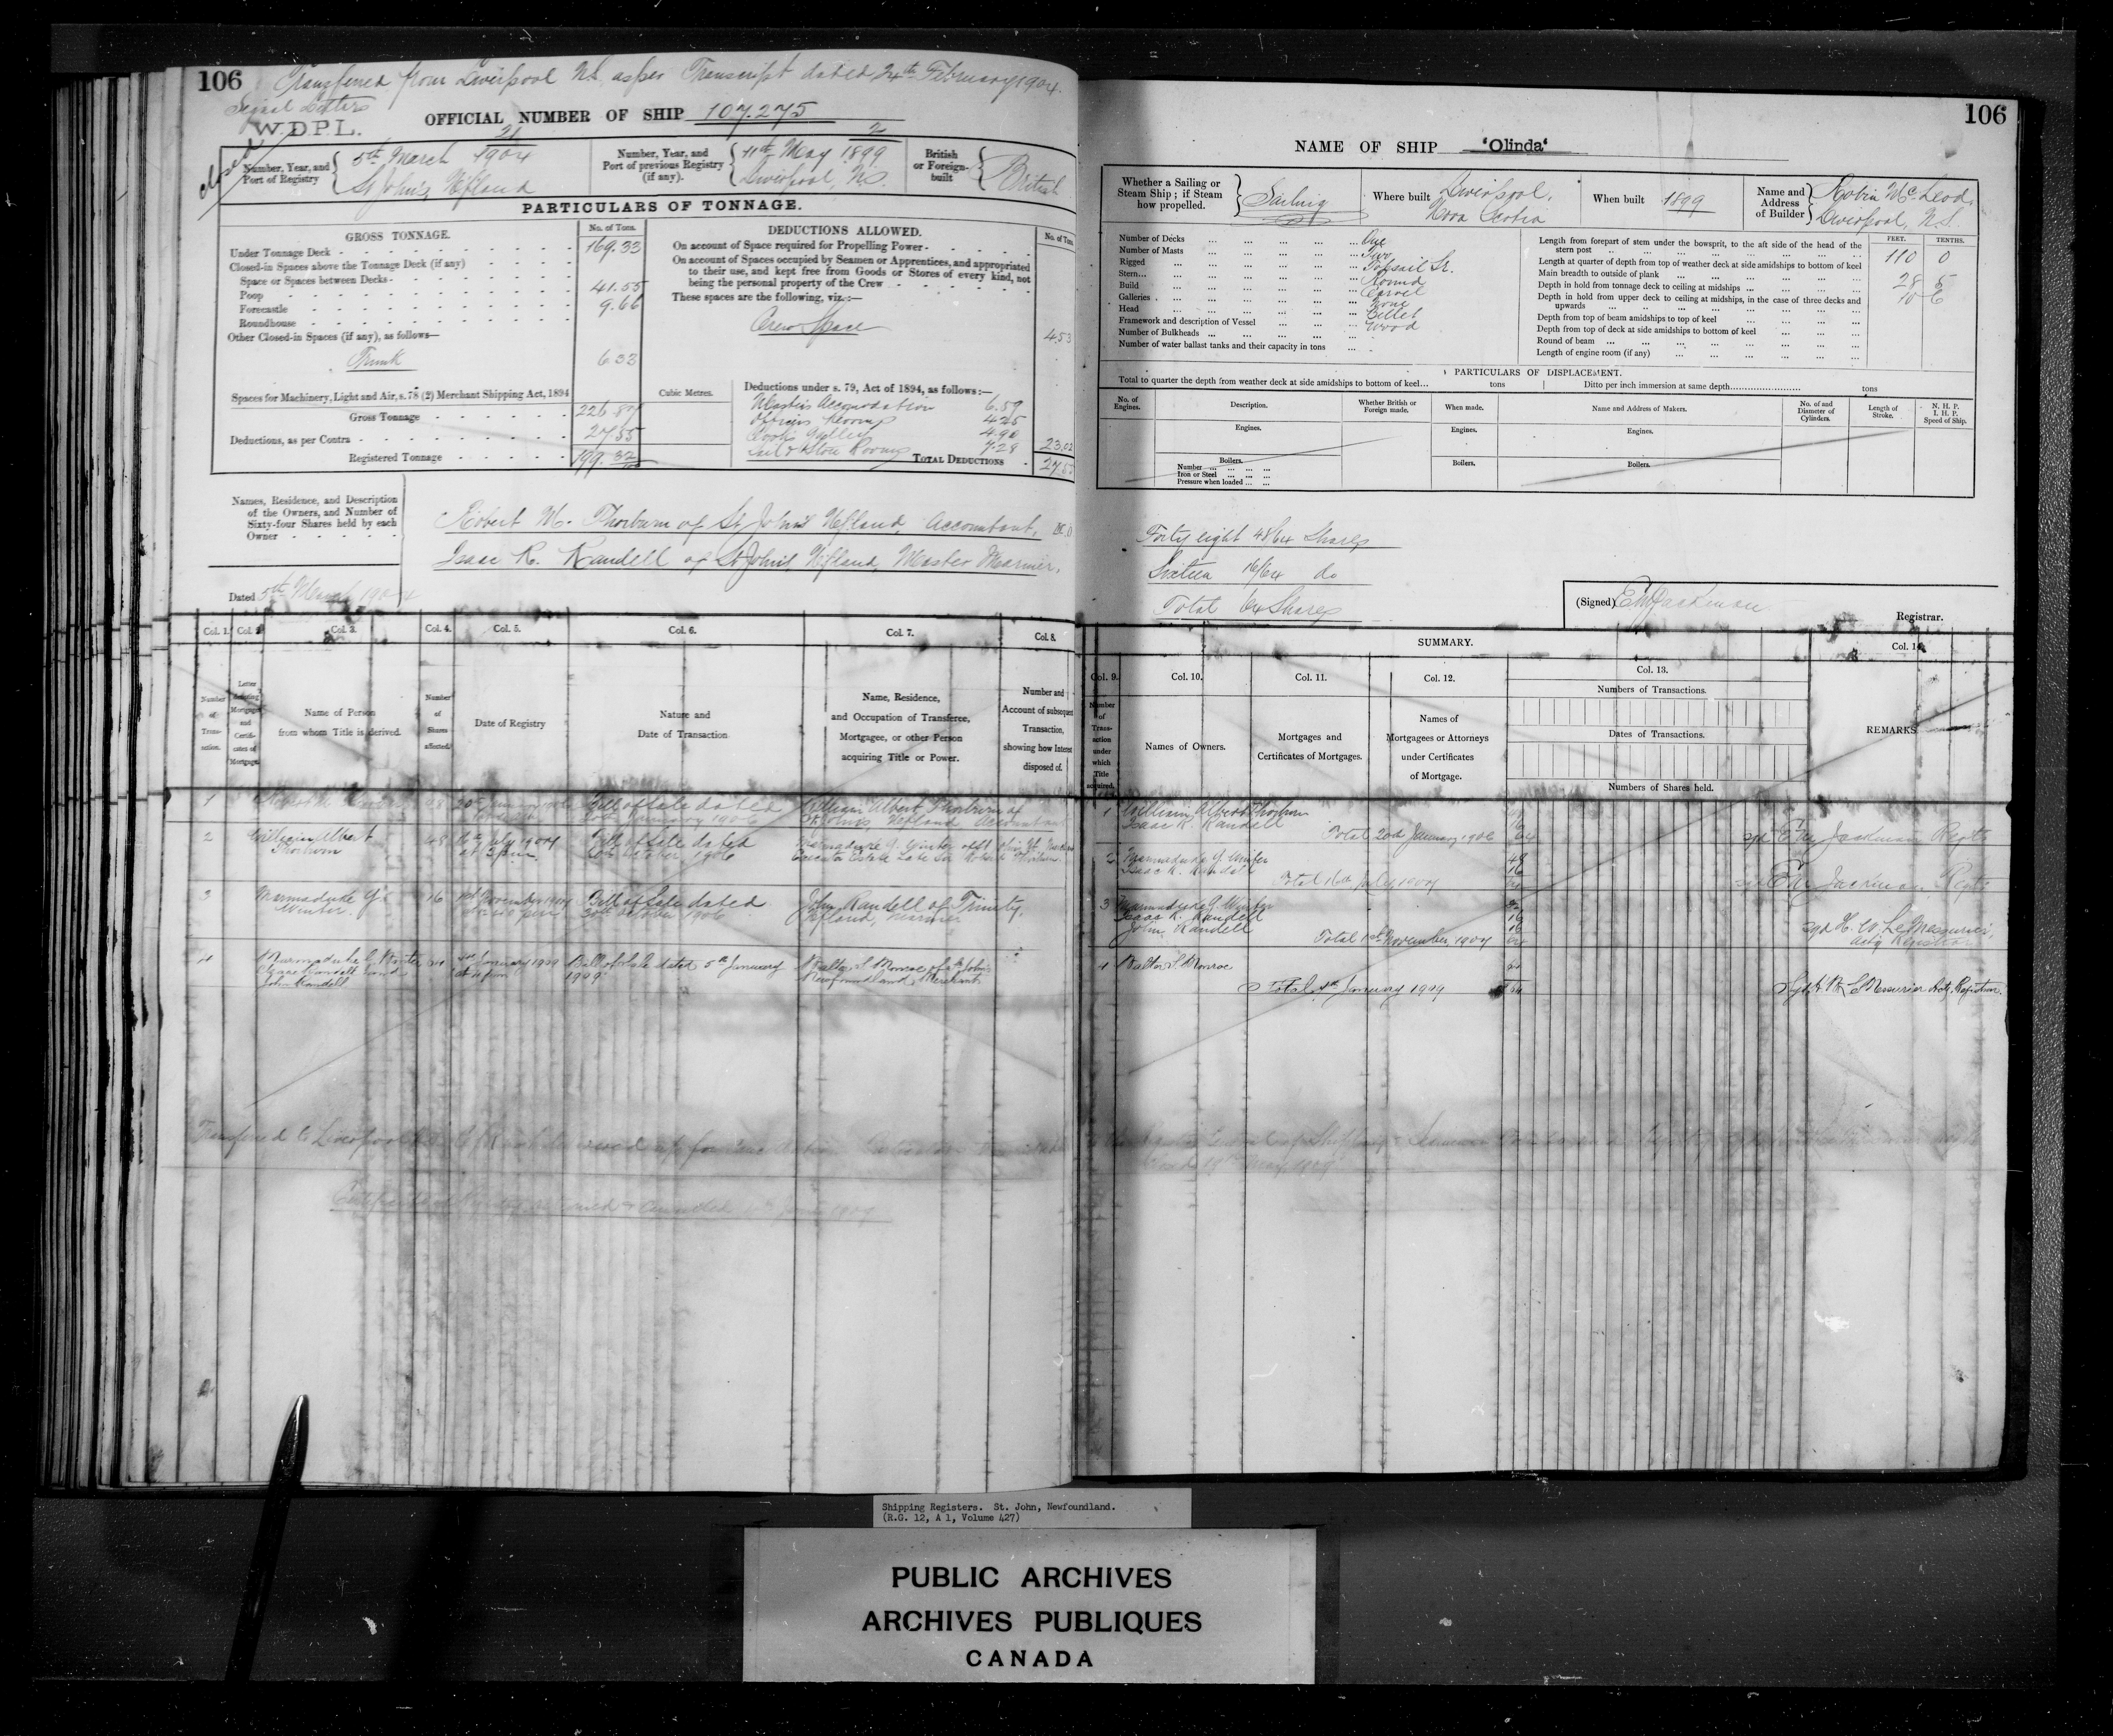 106 Transferred from Liverpool N.S. as per Transcript dated 24th February 1904.
Signal Letters
W.D.P.L.
OFFICIAL NUMBER OF SHIP 107.275
closed
Number, Year, and Port of Registry
21
5th March 1904
St John's, Nfland
Number, Year, and Port of previous Registry (if any).
2
11th May 1899
Liverpool, N.S.
British or Foreign-built
British
PARTICULARS OF TONNAGE.
GROSS TONNAGE. No. of Tons.
Under Tonnage Deck 169.33
Closed-in Spaces above the Tonnage Deck (if any)
Space or Spaces between Decks
Poop 41.55
Forecastle 9.66
Roundhouse
Other Closed-in Spaces (if any), as follows—
Trunk 6 33
Spaces for Machinery, Light and Air, s. 78 (2) Merchant Shipping Act, 1894
Cubic Metres.
Gross Tonnage 226.87
Deductions, as per Contra 27.55
Registered Tonnage 199.32
DEDUCTIONS ALLOWED. No. of Tons
On account of Space required for Propelling Power
On account of Spaces occupied by Seamen or Apprentices, and appropriated
to their use, and kept free from Goods or Stores of every kind, not
being the personal property of the Crew
These spaces are the following, viz.:—
Crew Space 4.53
Deductions under s. 79, Act of 1894, as follows:—
Masters Accomodation 6.59
Officers Rooms 4.25
Cooks Galley 4.90
Sail & Store Rooms 7.28 23.02
TOTAL DEDUCTIONS 27.55
Names, Residence, and Description
of the Owners, and Number of
Sixty-four Shares held by each
Owner
Robert M. Thorburn of St John's Nfland, Accountant,
Isaac R. Randell of St John's, Nfland, Master Mariner.
Dated 5th March 1904
Col. 1. Col. 2 Col. 3. Col. 4. Col. 5. Col. 6. Col. 7. Col. 8.
Number of Transaction.
Letter denoting Mortgages and Certificates of Mortgage.
Name of Person
from whom Title is derived.
Number of Shares affected.
Date of Registry
Nature and
Date of Transaction
Name, Residence,
and Occupation of Transferee,
Mortgagee, or other Person
acquiring Title or Power.
Number and
Account of subsequent
Transaction,
showing how Interest
disposed of.
1 48 Bill of Sale dated William Albert Thorburn of
20th January 1906 St John's Nfland Accountant
2 William Albert 48 16th July 1907 Bill of Sale dated Marmaduke G. Winter of St John's
Thorburn at 3 p.m. 30th October 1906 Executor Estate Late Sir Robert Thorburn
3 Marmaduke G. 16 1st November 1907 Bill of Sale dated John Randell of Trinity,
Winter 30th October 1906 Nfland, Mariner
4 Marmaduke G. Winter January 1909 Bill of Sale dated 5th January Walter S. Monroe of St John's
Isaac Randell and 1909 Newfoundland, Merchant
John Randell
Transferred to Liverpool
106
NAME OF SHIP 'Olinda'
Whether a Sailing or Steam Ship; if Steam how propelled.
Sailing
Where built
Liverpool,
Nova Scotia
When built 1899
Name and Address of Builder
Robin McLeod,
Liverpool, N.S.
Number of Decks One
Number of Masts Two
Rigged Topsail Sr.
Stern Round
Build Carvel
Galleries None
Head Billet
Framework and description of Vessel Wood
Number of Bulkheads
Number of water ballast tanks and their capacity in tons
FEET. TENTHS.
Length from forepart of stem under the bowsprit, to the aft side of the head of the
stern post 110 0
Length at quarter of depth from top of weather deck at side amidships to bottom of keel
Main breadth to outside of plank 28 5
Depth in hold from tonnage deck to ceiling at midships 10 6
Depth in hold from upper deck to ceiling at midships, in the case of three decks and
upwards
Depth from top of beam amidships to top of keel
Depth from top of deck at side amidships to bottom of keel
Round of beam
Length of engine room (if any)
PARTICULARS OF DISPLACEMENT.
Total to quarter the depth from weather deck at side amidships to bottom of keel... tons Ditto per inch immersion at same depth tons
No. of Engines. Description. Whether British or Foreign made. When made. Name and Address of Makers. No. of and Diameter of Cylinders. Length of Stroke. N. H. P. I. H. P. Speed of Ship.
Engines. Engines. Engines.
Boilers. Boilers. Boilers.
Number
Iron or Steel
Pressure when loaded
Forty eight 48/64 Shares
Sixteen 16/64 do
Total 64 Shares
(Signed) E M Jackman
Registrar.
SUMMARY.
Col. 9. Col. 10. Col. 11. Col. 12. Col. 13. Col. 14.
Number of Transaction under which Title acquired.
Names of Owners.
Mortgages and
Certificates of Mortgages.
Names of
Mortgagees or Attorneys
under Certificates
of Mortgage.
Numbers of Transactions.
Dates of Transactions.
Numbers of Shares held.
REMARKS
1 William Albert Thorburn
Isaac R. Randell
Total 20th January 1906 64 sgd E M Jackman Regtr
2 Marmaduke G. Winter 48
Isaac R. Randell 16
Total 16th July 1907 64 E M Jackman, Regtr
3 Marmaduke G. Winter
Isaac R. Randell 16
John Randell 16
Total 1st November, 1907 64 sgd H. W. LeMessurier, Actg Registrar
4 Walter S. Monroe 64
Total January 1909 64 Sgd H W LeMessurier Actg. Registrar.
Shipping Registers. St. John, Newfoundland.
(R.G. 12, A 1, Volume 427)
PUBLIC ARCHIVES
ARCHIVES PUBLIQUES
CANADA